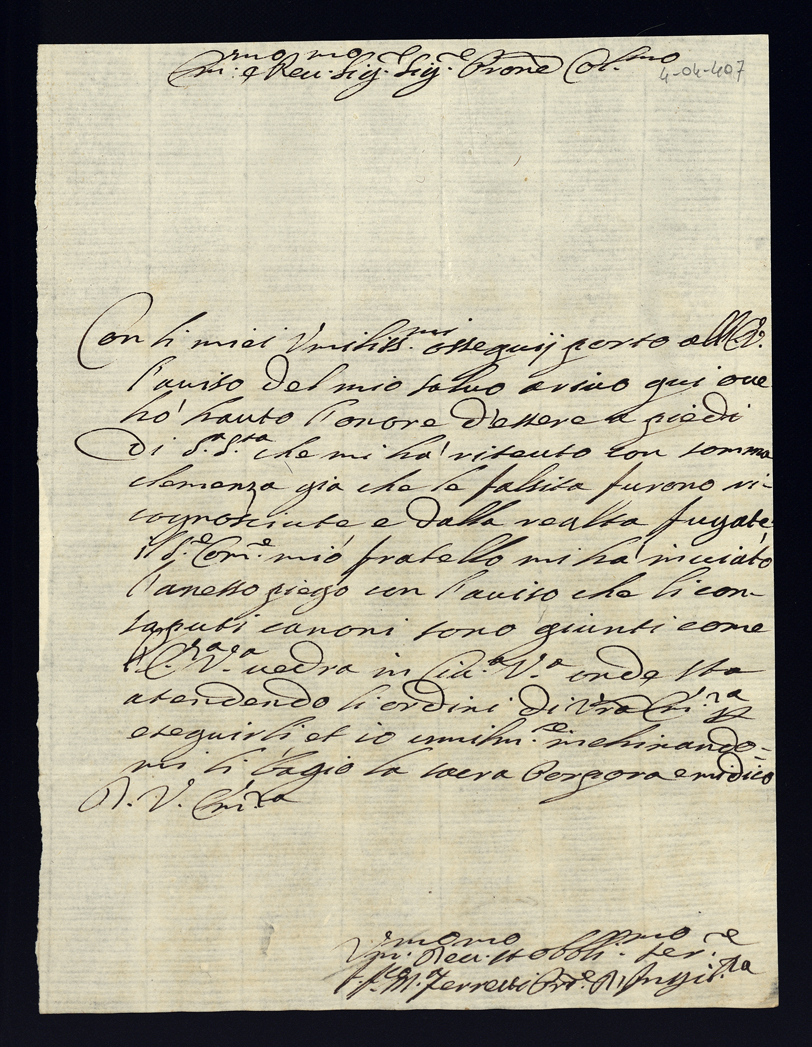 Em.mo e Reu.mo Sig.re Sig.re Prone Col.mo
4-04-407
Con li miei Vmiliss.mi osseguij porto all E.V.
l'auiso del mio saluo ariuo qui oue
ho' hauto l'onore d'essere a piedi
di S.a S.tta che mi ha' riceuto con somma
clemenza gia che le falsita furono ri-
cognosciute e dalla realta fugate
il S.e Com.e mio fratello mi ha' inuiato
l'anesso piego con l'auiso che li con-
saputi canoni sono giunti come
l'E.za V.ra uedra in onde sta
atendendo li ordini di Vra Em.za p
eseguirli et io umilm.te inchinando-
mi li bagio la sacra Porpora e mi dico
D. V. Em.za
Vm.mo Deu.mo et obbli.mo ser.re
F. M. Ferretti